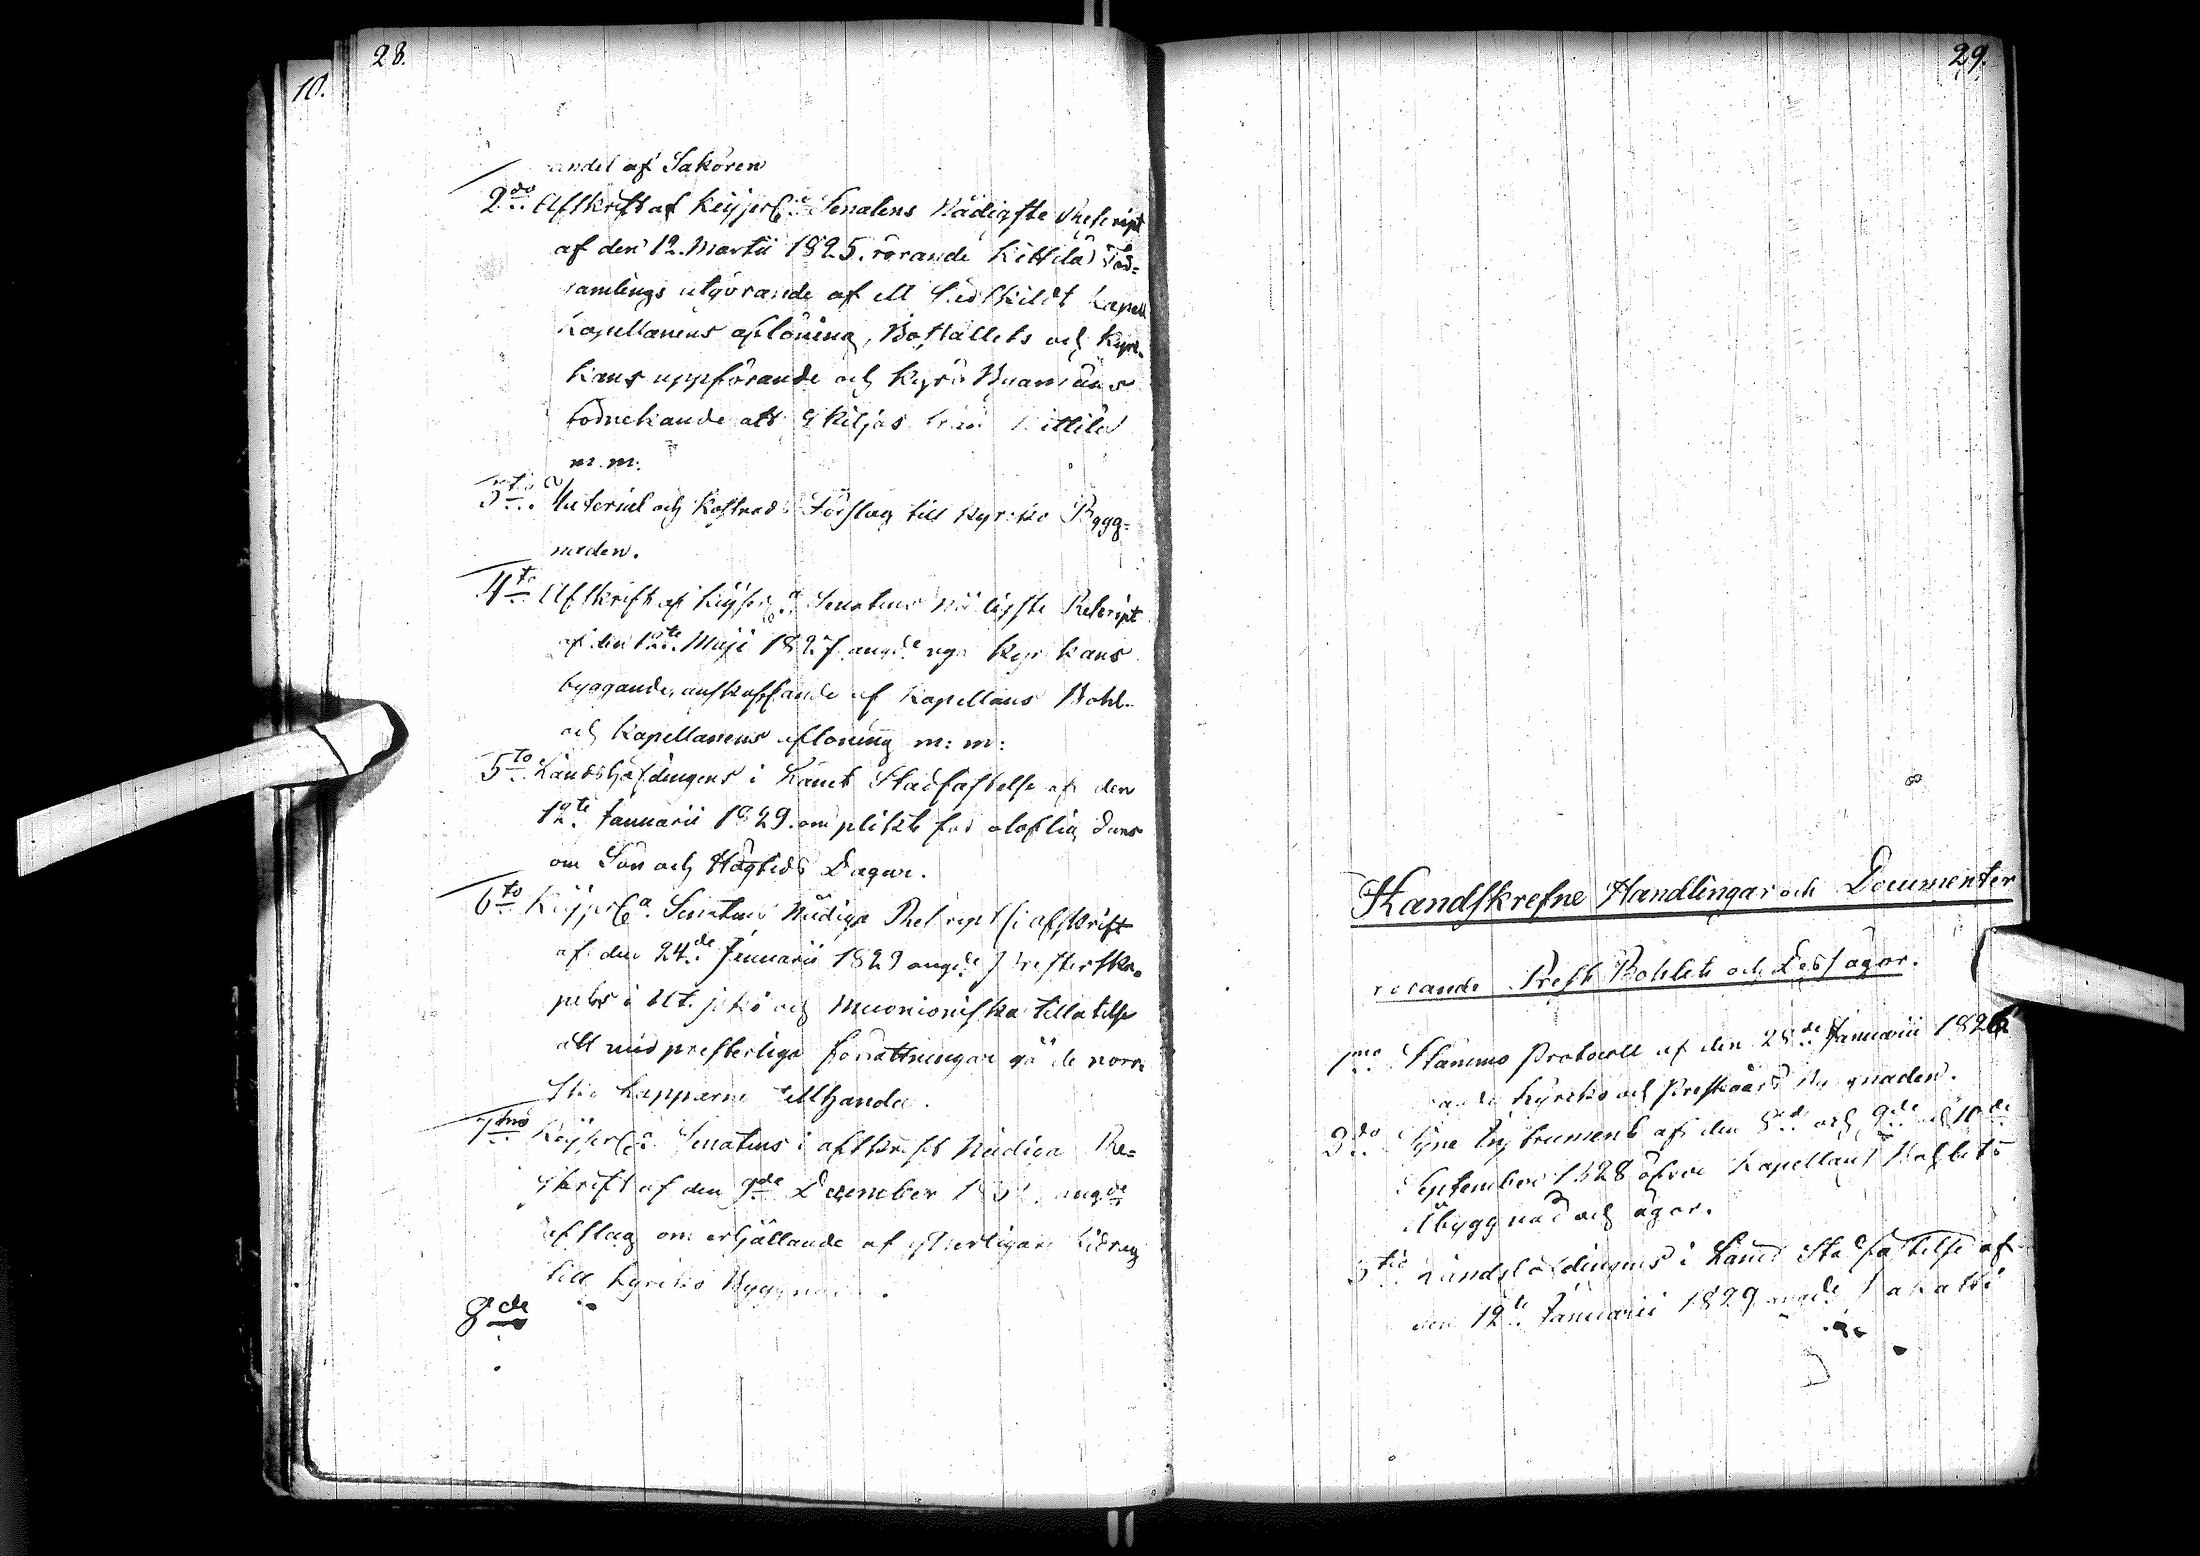 10.
28.
andel af Saköron
2do Afskrift af Keijserl:a Senatens Nådigste Rescript
af den 12. Martii 1825. rörande Kittilä För-
samlings utgörande af ett särskildt Capell
Kapellanens aflöning, Boställets och Kyr-
kans uppförande och Kyrö Byamäns
förnekande att skiljas från Kittilä
m. m.
3tio Material och Kostnads Förslag till Kyrko Bygg-
naden.
4to Afskrift af Keijserl:a Senatens Nådigste Rescript
af den 12te Maji 1827. angde nya Kyrkans
byggande, anskaffande af Kapellans Bohl
och Kapellanens aflöning m: m:
5to Landshöfdingens i Länet Stadfästelse af den
12te Januarii 1829. om plikt för olaflig Dans
om Sön och Högtids Dagar.
6to Keijserl:a Senatens Nådiga Rescript (i afskrift
af den 24de Januarii 1829 angde Presterska-
pets i Utsjoki och Muonioniska tillåtelse
att med presterliga förrättningar gå de norr-
ska Lapparne tillhanda.
7mo Keijserl:a Senatens i afskrift Nådiga Re-
skrift af den 9de December angde
afslag om erhållande af ytterligare bidrag
till Kyrko Byggnaden.
8de
29.
Handskrefne Handlingar och Documenter
rörande Prest Bohlet och Dess ägor.
1mo Stämmo Protocoll af den 28de Januarii 1826
rande Kyrko och Prestgårds Byggnaden.
2do Syne Instrument af den 8de och 9de och 10de
September 1828 öfver Kapellans Bohlets
Åbyggnad och ägor.
3tio Landshöfdingens i Länet Stadfästelse af
den 12te Januarii 1829 angde